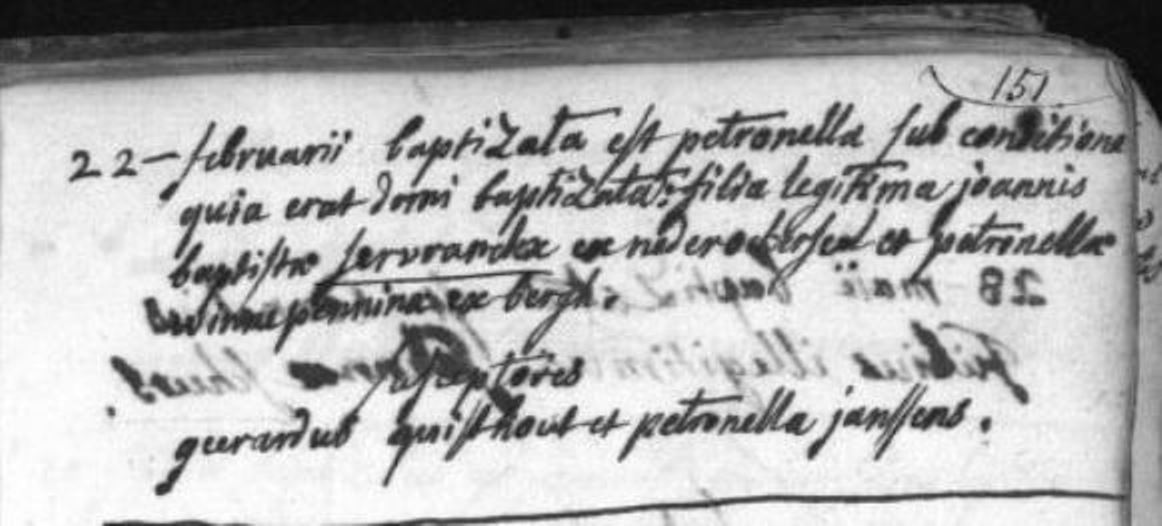 151
22 - februarii baptizata est petronella sub conditione
quia erat domi baptizata: filia legitima joannis
baptistæ servranckx ex nederockerseel et petronellæ
penninx ex bergh.
susceptores
geerardus quisthout et petronella janssens.